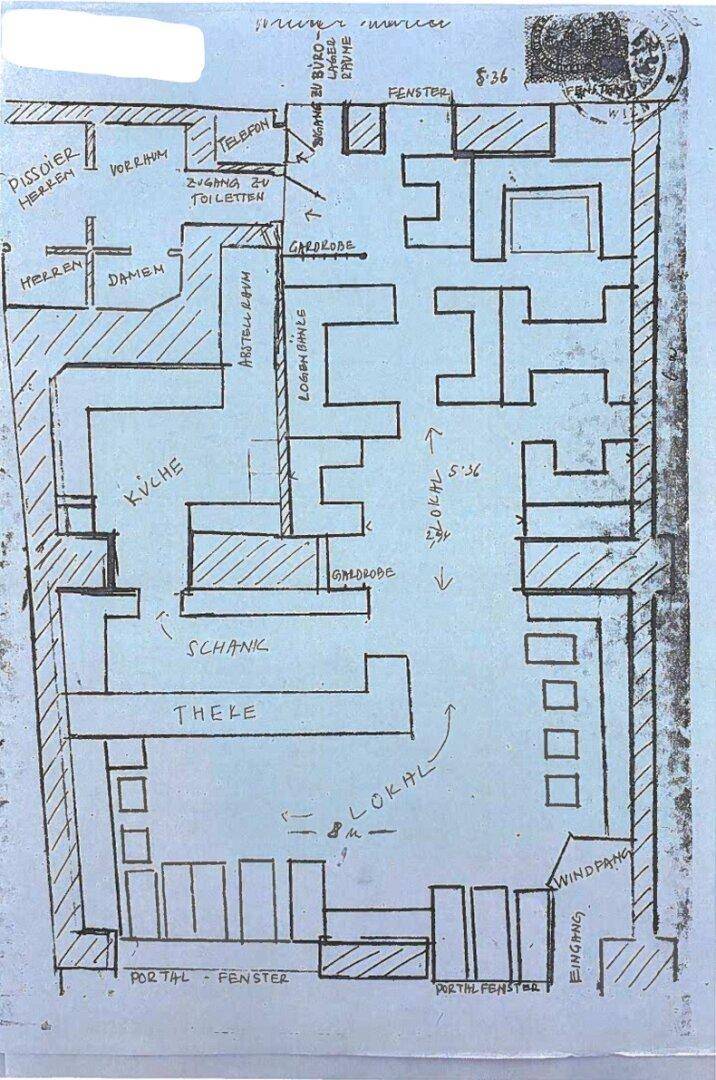 ZUGANG ZU BÜRO-
LAGER
RÄUME
FENSTER
5:36
FENSTER
WIEN
PISSOIER
HERREN
VORRAUM
TELEFON
ZUGANG ZU
TOILETTEN
GARDROBE
HERREN
DAMEN
ABSTELLRAUM
LOGENBÄNKE
KÜCHE
LOKAL
5:36
GARDROBE
SCHANK
THEKE
LOKAL
8 m
WINDFANG
EINGANG
PORTAL - FENSTER
PORTALFENSTER